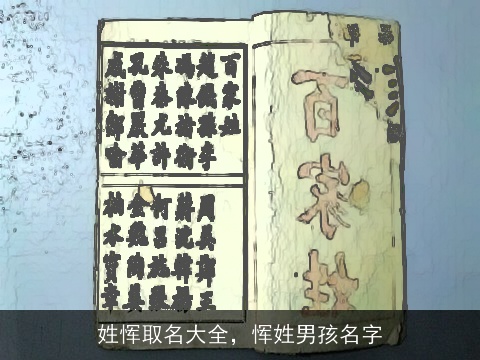 百家姓
百家姓
趙錢孫李
馮陳褚衛
朱秦尤許
孔曹嚴華
戚謝鄒喻
周吳鄭王
蔣沈韓楊
何呂施張
金魏陶姜
柏水竇章
姓恽取名大全，恽姓男孩名字